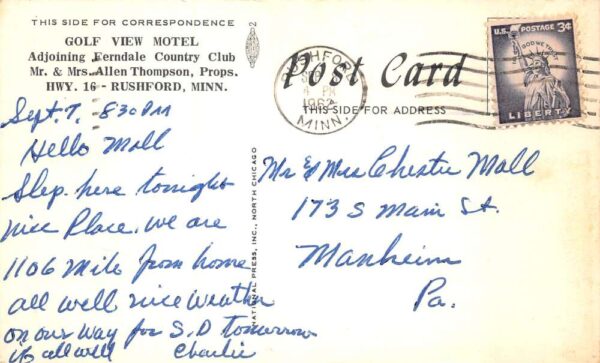 THIS SIDE FOR CORRESPONDENCE
GOLF VIEW MOTEL
Adjoining Ferndale Country Club
Mr. & Mrs. Allen Thompson, Props.
HWY. 16 - RUSHFORD, MINN.
Sept. 7, 830 PM
Hello Moll
Slep. here tonight
nice Place, we are
1106 Mile from home
all well nice weather
on our way for S.D tomorrow
all well Charlie
NATIONAL PRESS, INC., NORTH CHICAGO
2
Post Card
THIS SIDE FOR ADDRESS
RUSHFORD
PM
MINN.
U.S. POSTAGE 3¢
IN GOD WE TRUST
LIBERTY
Mr & Mrs Chester Moll
173 S Main St.
Manheim
Pa.